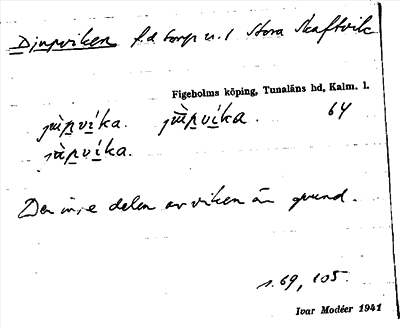 Djupviken f.d torp u. / Stora Skaftvik
Figeholms köping, Tunaläns hd, Kalm. l.
jùpvíka. jùpvíka. 64
jùpvíka.
Den inre delen av viken är grund.
s. 69, 105.
Ivar Modéer 1941